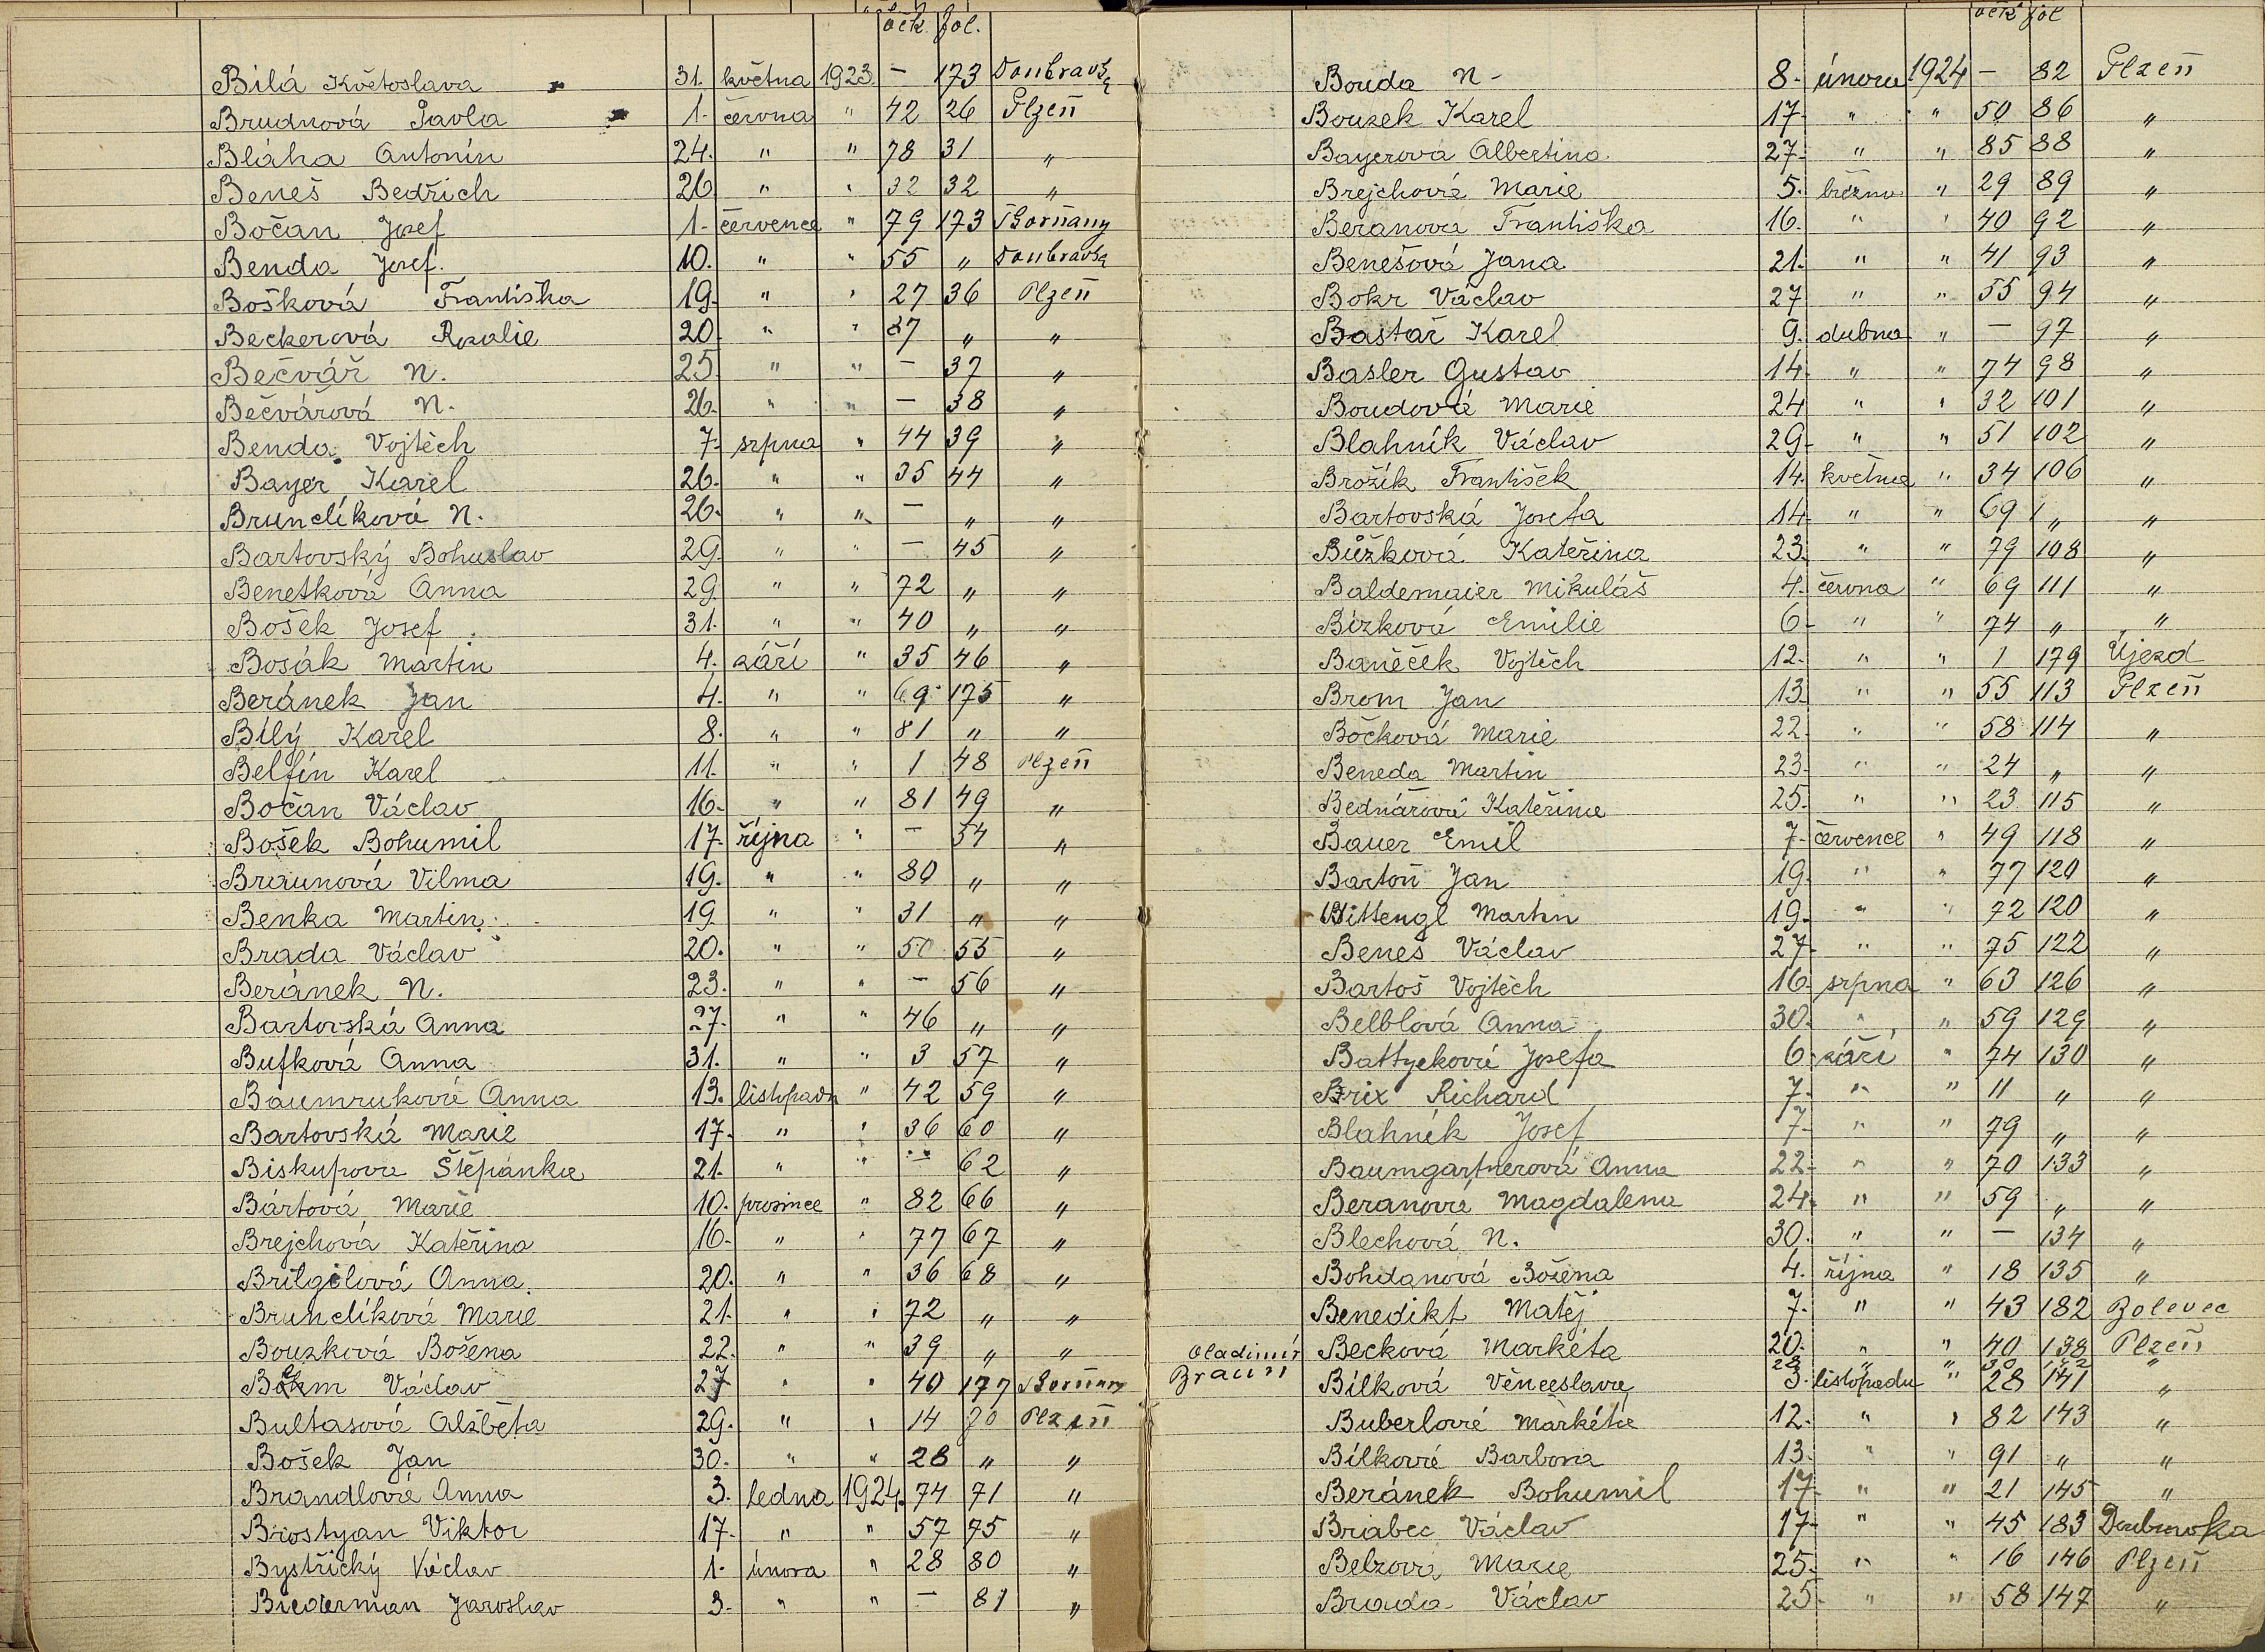 očk. fol.
Bílá Květoslava 31. května 1923. — 173 Doubravka
Brudnová Pavla 1. června " 42 26 Plzeň
Bláha Antonín 24. " " 78 31 "
Beneš Bedřich 26 " " 32 32 "
Bočan Josef 1. července " 79 173 Bořňany
Benda Josef. 10. " " 55 " Doubravka
Bošková Františka 19. " " 27 36 Plzeň
Beckerová Rozalie 20. " " 87 " "
Bečvář N. 25. " " — 37 "
Bečvářová N. 26. " " — 38 "
Benda Vojtěch 7. srpna " 44 39 "
Bayer Karel 26. " " 35 44 "
Brunclíková N. 26. " " — " "
Bartovský Bohuslav 29. " " — 45 "
Benetková Anna 29. " " 72 " "
Bošek Josef 31. " " 40 " "
Bosák Martin 4. září " 35 46 "
Beránek Jan 4. " " 69 175 "
Bílý Karel 8. " " 81 " "
Belfín Karel 11. " " 1 48 Plzeň
Bočan Václav 16. " " 81 49 "
Bošek Bohumil 17. října " — 54 "
Braunová Vilma 19. " " 80 " "
Benka Martin 19 " " 31 " "
Brada Václav 20. " " 50 55 "
Beránek N. 23. " " — 56 "
Bartovská Anna 27. " " 46 " "
Bufková Anna 31. " " 3 57 "
Baumruková Anna 13. listopadu " 42 59 "
Bartovská Marie 17. " " 36 60 "
Biskupova Štěpánka 21. " " — 62 "
Bártová Marie 10. prosince " 82 66 "
Brejchová Kateřina 16. " " 77 67 "
Brilgilová Anna. 20. " " 36 68 "
Brunclíková Marie 21. " " 72 " "
Bouzková Božena 22. " " 39 " "
Böhm Václav 27 " " 40 177 Bořňany
Bultasová Alžběta 29. " " 14 70 Plzeň
Bošek Jan 30. " " 28 " "
Brandlová Anna 3. ledna 1924. 74 71 "
Brostyan Viktor 17. " " 57 75 "
Bystřický Václav 1. února " 28 80 "
Biederman Jaroslav 3. " " — 81 "
očk fol
Bouda N. 8. února 1924 — 82 Plzeň
Bouzek Karel 17. " " 50 86 "
Bayerová Albertina 27. " " 85 88 "
Brejchová Marie 5. března " 29 89 "
Beranova Františka 16. " " 40 92 "
Benešová Jana 21. " " 41 93 "
Bokr Václav 27 " " 55 94 "
Bastař Karel 9. dubna " — 97 "
Basler Gustav 14. " " 74 98 "
Boudová Marie 24 " " 32 101 "
Blahník Václav 29. " " 51 102 "
Brožík František 14. května " 34 106 "
Bartovská Josefa 14. " " 69 " "
Bůžková Kateřina 23. " " 79 108 "
Baldemaier Mikuláš 4. června " 69 111 "
Bízková Emilie 6. " " 74 " "
Baněček Vojtěch 12. " " 1 179 Újezd
Brom Jan 13. " " 55 113 Plzeň
Bočková Marie 22. " " 58 114 "
Beneda Martin 23. " " 24 " "
Bednářová Kateřina 25. " " 23 115 "
Bauer Emil 7. července " 49 118 "
Bartoň Jan 19. " " 77 120 "
Bittengl Martin 19. " " 72 120 "
Beneš Václav 27. " " 75 122 "
Bartoš Vojtěch 16. srpna " 63 126 "
Belblová Anna 30. " " 59 129 "
Battyeková Josefa 6. září " 74 130 "
Brix Richard 7. " " 11 " "
Blahník Josef 7. " " 79 " "
Baumgartnerová Anna 22. " " 70 133 "
Beranová Magdalena 24. " " 59 " "
Blechová N. 30. " " — 134 "
Bohdanová Božena 4. října " 18 135 "
Benedikt Matěj 7. " " 43 182 Bolevec
Becková Markéta 20. " " 40 138 Plzeň
Vladimír Braun 28 " " 30 "
Bílková Věnceslava 3. listopadu " 28 141 "
Buberlová Markéta 12. " " 82 143 "
Bílková Barbora 13. " " 91 " "
Beránek Bohumil 17. " " 21 145 "
Brabec Václav 17. " " 45 183 Doubravka
Belzova Marie 25. " " 16 146 Plzeň
Brada Václav 25. " " 58 147 "